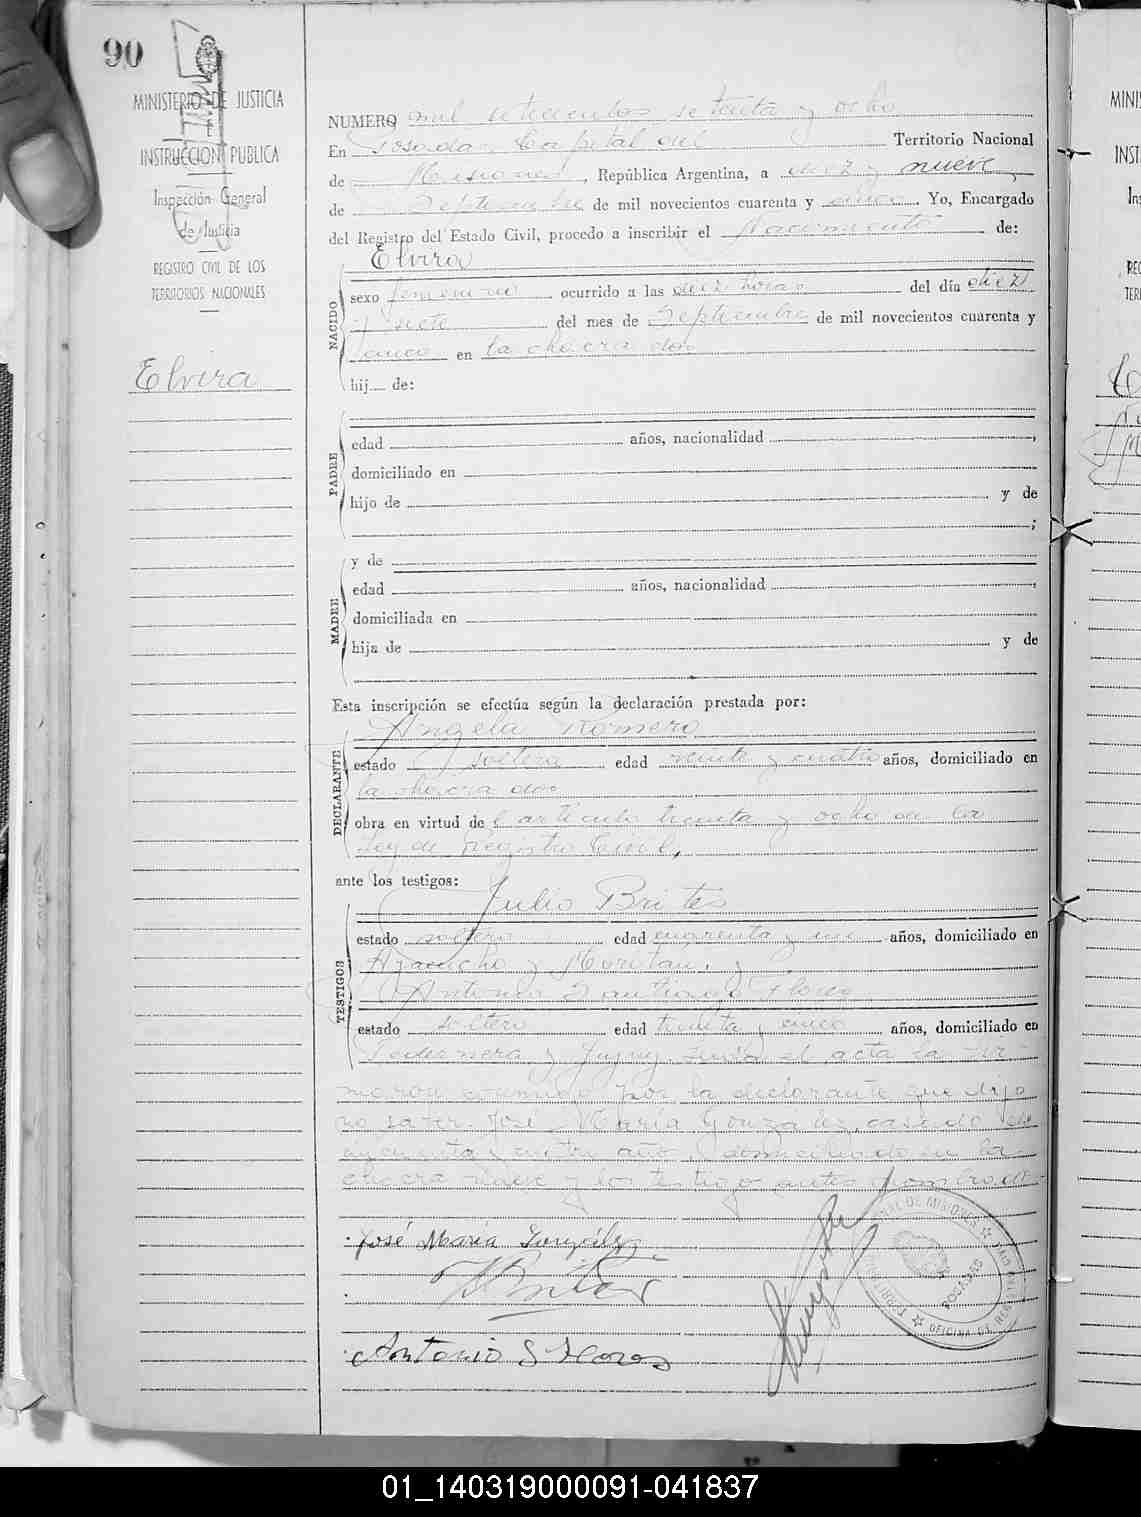 90
MINISTERIO DE JUSTICIA
E
INSTRUCCION PUBLICA
Inspección General
de Justicia
REGISTRO CIVIL DE LOS
TERRITORIOS NACIONALES
Elvira
NUMERO mil setecientos setenta y ocho
En Posadas Capital del Territorio Nacional
de Misiones, República Argentina, a diez y nueve
de Septiembre de mil novecientos cuarenta y cinco. Yo, Encargado
del Registro del Estado Civil, procedo a inscribir el Nacimiento de:
NACIDO
Elvira
sexo femenino ocurrido a las diez horas del día diez
y siete del mes de Septiembre de mil novecientos cuarenta y
cinco en la chacra dos
hij de:
PADRE
edad años, nacionalidad ,
domiciliado en
hijo de y de
;
MADRE
y de
edad años, nacionalidad ,
domiciliada en
hija de y de
Esta inscripción se efectúa según la declaración prestada por:
DECLARANTE
Angela Romero
estado soltera edad veinte y cuatro años, domiciliado en
la chacra dos
obra en virtud del artículo treinta y ocho de la
Ley de Registro Civil.
ante los testigos:
TESTIGOS
Julio Brites
estado soltero edad cuarenta y un años, domiciliado en
Ayacucho y
Antonio Santiago Flores
estado soltero edad treinta y cinco años, domiciliado en
y Jujuy. Leída el acta la fir-
maron conmigo por la declarante que dijo
no saber José María González, casado de
cuenta y cuatro años domiciliado en la
chacra nueve y los testigos antes nombrados
José María González
J Brites
Antonio S Flores
POSADAS
OFICINA DE
01_140319000091-041837